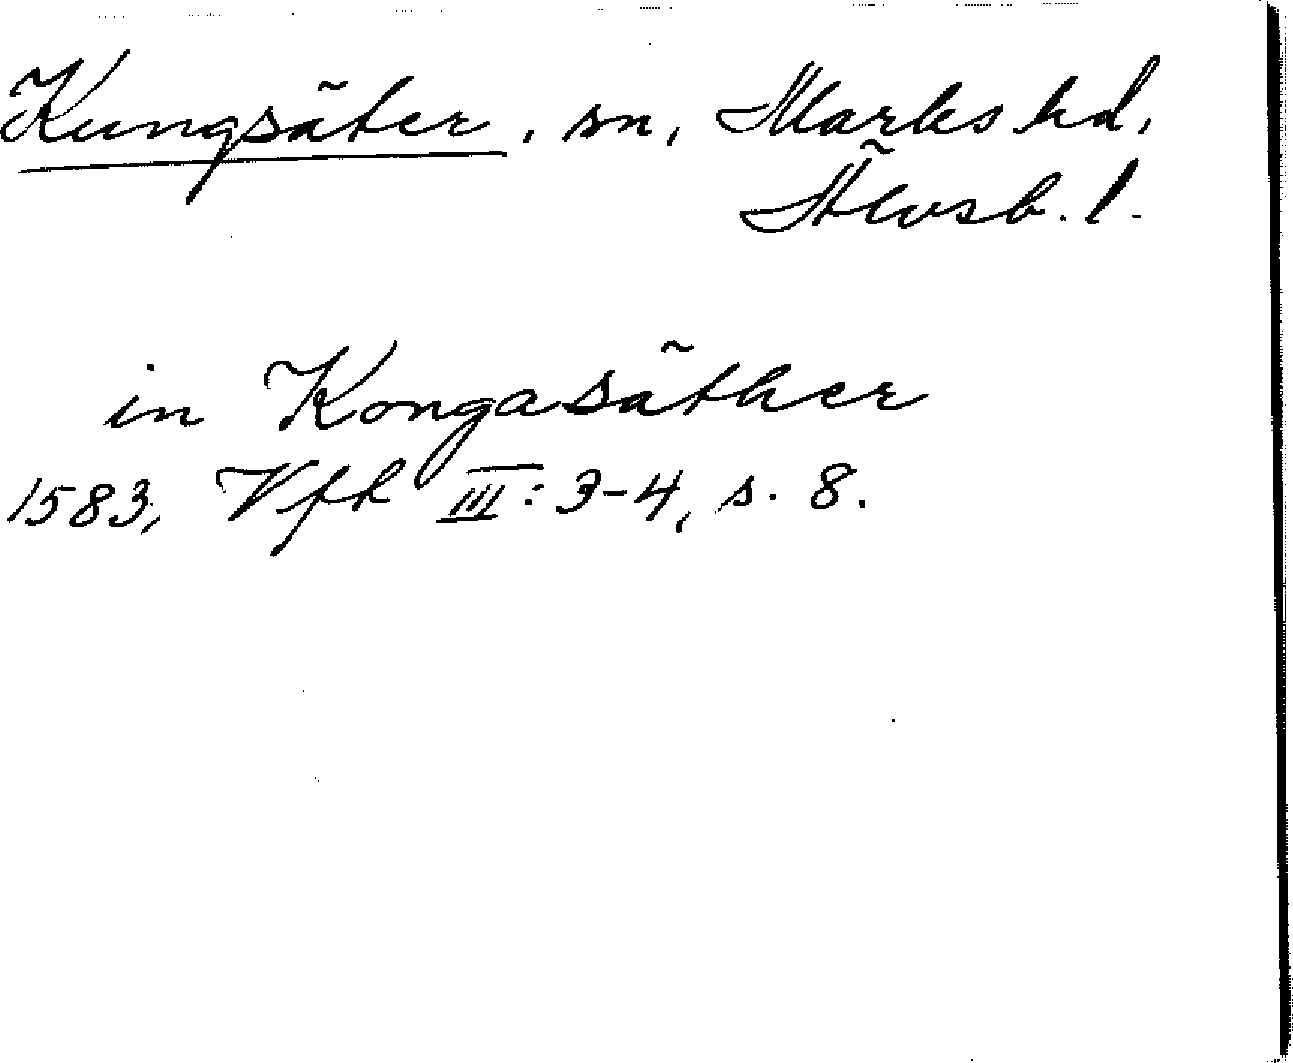 Kungsäter, sn, Marks hd,
Älvsb. l.
in Kongasäther
1583, Vfk III: 3-4, s. 8.